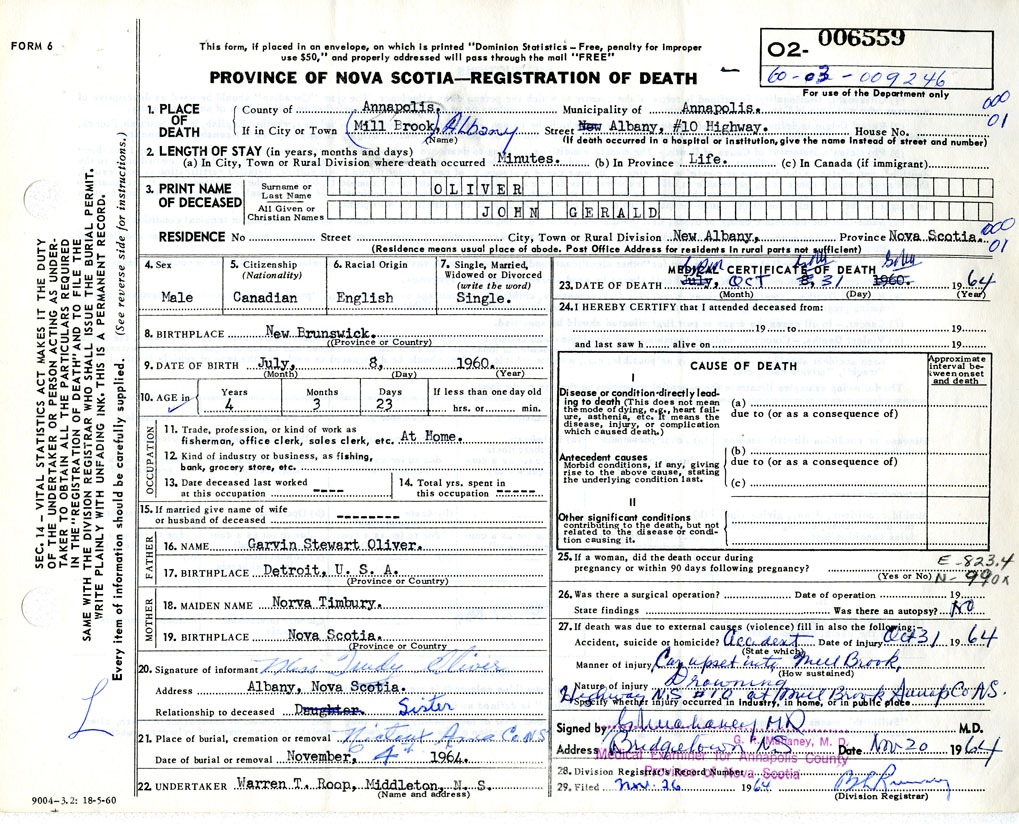 FORM 6
This form, if placed in an envelope, on which is printed "Dominion Statistics – Free, penalty for improper
use $50," and properly addressed will pass through the mail "FREE"
PROVINCE OF NOVA SCOTIA—REGISTRATION OF DEATH
O2- 006559
60-03-009246
For use of the Department only
000
01
1. PLACE OF DEATH
County of Annapolis. Municipality of Annapolis.
If in City or Town (Mill Brook) Albany Street New Albany, #10 Highway. House No.
(Name) (If death occurred in a hospital or institution, give the name instead of street and number)
2. LENGTH OF STAY (in years, months and days)
(a) In City, Town or Rural Division where death occurred Minutes. (b) In Province Life. (c) In Canada (if immigrant)
3. PRINT NAME OF DECEASED
Surname or Last Name OLIVER
All Given or Christian Names JOHN GERALD
RESIDENCE No Street City, Town or Rural Division New Albany, Province Nova Scotia.
000
01
(Residence means usual place of abode. Post Office Address for residents in rural parts not sufficient)
4. Sex
Male
5. Citizenship
(Nationality)
Canadian
6. Racial Origin
English
7. Single, Married,
Widowed or Divorced
(write the word)
Single.
8. BIRTHPLACE New Brunswick.
(Province or Country)
9. DATE OF BIRTH July, 8, 1960.
(Month) (Day) (Year)
10. AGE in
Years Months Days If less than one day old
4 3 23 hrs. or min.
OCCUPATION
11. Trade, profession, or kind of work as
fisherman, office clerk, sales clerk, etc. At Home.
12. Kind of industry or business, as fishing,
bank, grocery store, etc.
13. Date deceased last worked
at this occupation ----
14. Total yrs. spent in
this occupation -----
15. If married give name of wife
or husband of deceased --------
FATHER
16. NAME Garvin Stewart Oliver.
17. BIRTHPLACE Detroit, U. S. A.
(Province or Country)
MOTHER
18. MAIDEN NAME Norva Timbury.
19. BIRTHPLACE Nova Scotia.
(Province or Country
20. Signature of informant Miss Trudy Oliver
Address Albany, Nova Scotia.
Relationship to deceased Daughter. Sister
21. Place of burial, cremation or removal Nictaux Anna Co NS
Date of burial or removal November, 4th 1964.
22. UNDERTAKER Warren T. Roop, Middleton, N. S.
(Name and address)
9004-3.2: 18-5-60
MEDICAL CERTIFICATE OF DEATH
23. DATE OF DEATH July, OCT 8, 31 1960. 19 64
(Month) (Day) (Year)
24. I HEREBY CERTIFY that I attended deceased from:
19 to 19
and last saw h alive on 19
CAUSE OF DEATH
Approximate
interval be-
tween onset
and death
I
Disease or condition directly lead-
ing to death (This does not mean
the mode of dying, e.g., heart fail-
ure, asthenia, etc. It means the
disease, injury, or complication
which caused death.)
(a)
due to (or as a consequence of)
Antecedent causes
Morbid conditions, if any, giving
rise to the above cause, stating
the underlying condition last.
(b)
due to (or as a consequence of)
(c)
II
Other significant conditions
contributing to the death, but not
related to the disease or condi-
tion causing it.
25. If a woman, did the death occur during
pregnancy or within 90 days following pregnancy?
(Yes or No)
E-823.4
N-990x
26. Was there a surgical operation? Date of operation 19
State findings Was there an autopsy? NO
27. If death was due to external causes (violence) fill in also the following:-
Accident, suicide or homicide? Accident Date of injury Oct 31 19 64
(State which)
Manner of injury Car upset into Mill Brook,
(How sustained)
Nature of injury Drowning
Highway N.S #10 at Mill Brook Annap Co NS.
Specify whether injury occurred in industry, in home, or in public place
Signed by M.D.
Mahaney, M. D.
Address Bridgetown NS Date Nov 20 1964
Medical Examiner for Annapolis County
Province of Nova Scotia
28. Division Registrar's Record Number
29. Filed Nov. 26 1964
(Division Registrar)
SEC. 14 – VITAL STATISTICS ACT MAKES IT THE DUTY
OF THE UNDERTAKER OR PERSON ACTING AS UNDER-
TAKER TO OBTAIN ALL THE PARTICULARS REQUIRED
IN THE "REGISTRATION OF DEATH" AND TO FILE THE
SAME WITH THE DIVISION REGISTRAR WHO SHALL ISSUE THE BURIAL PERMIT.
WRITE PLAINLY WITH UNFADING INK. THIS IS A PERMANENT RECORD.
Every item of information should be carefully supplied. (See reverse side for instructions.)